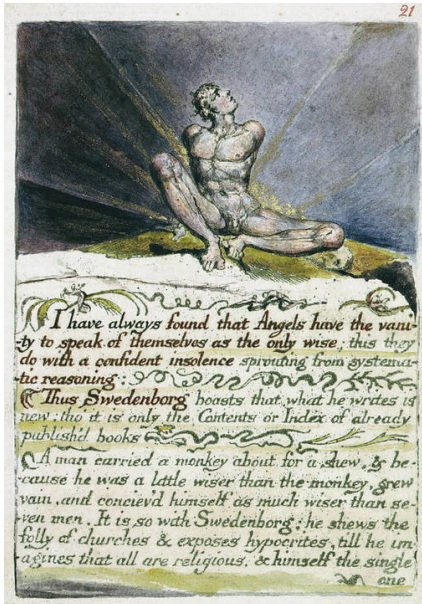 21
I have always found that Angels have the vani-
-ty to speak of themselves as the only wise; this they
do with a confident insolence sprouting from systema-
tic reasoning:
Thus Swedenborg boasts that what he writes is
new: tho' it is only the Contents or Index of already
publish'd books
A man carried a monkey about for a shew, & be-
cause he was a little wiser than the monkey, grew
vain, and conciev'd himself as much wiser than se-
ven men. It is so with Swedenborg: he shews the
folly of churches & exposes hypocrites, till he im-
agines that all are religious, & himself the single
one